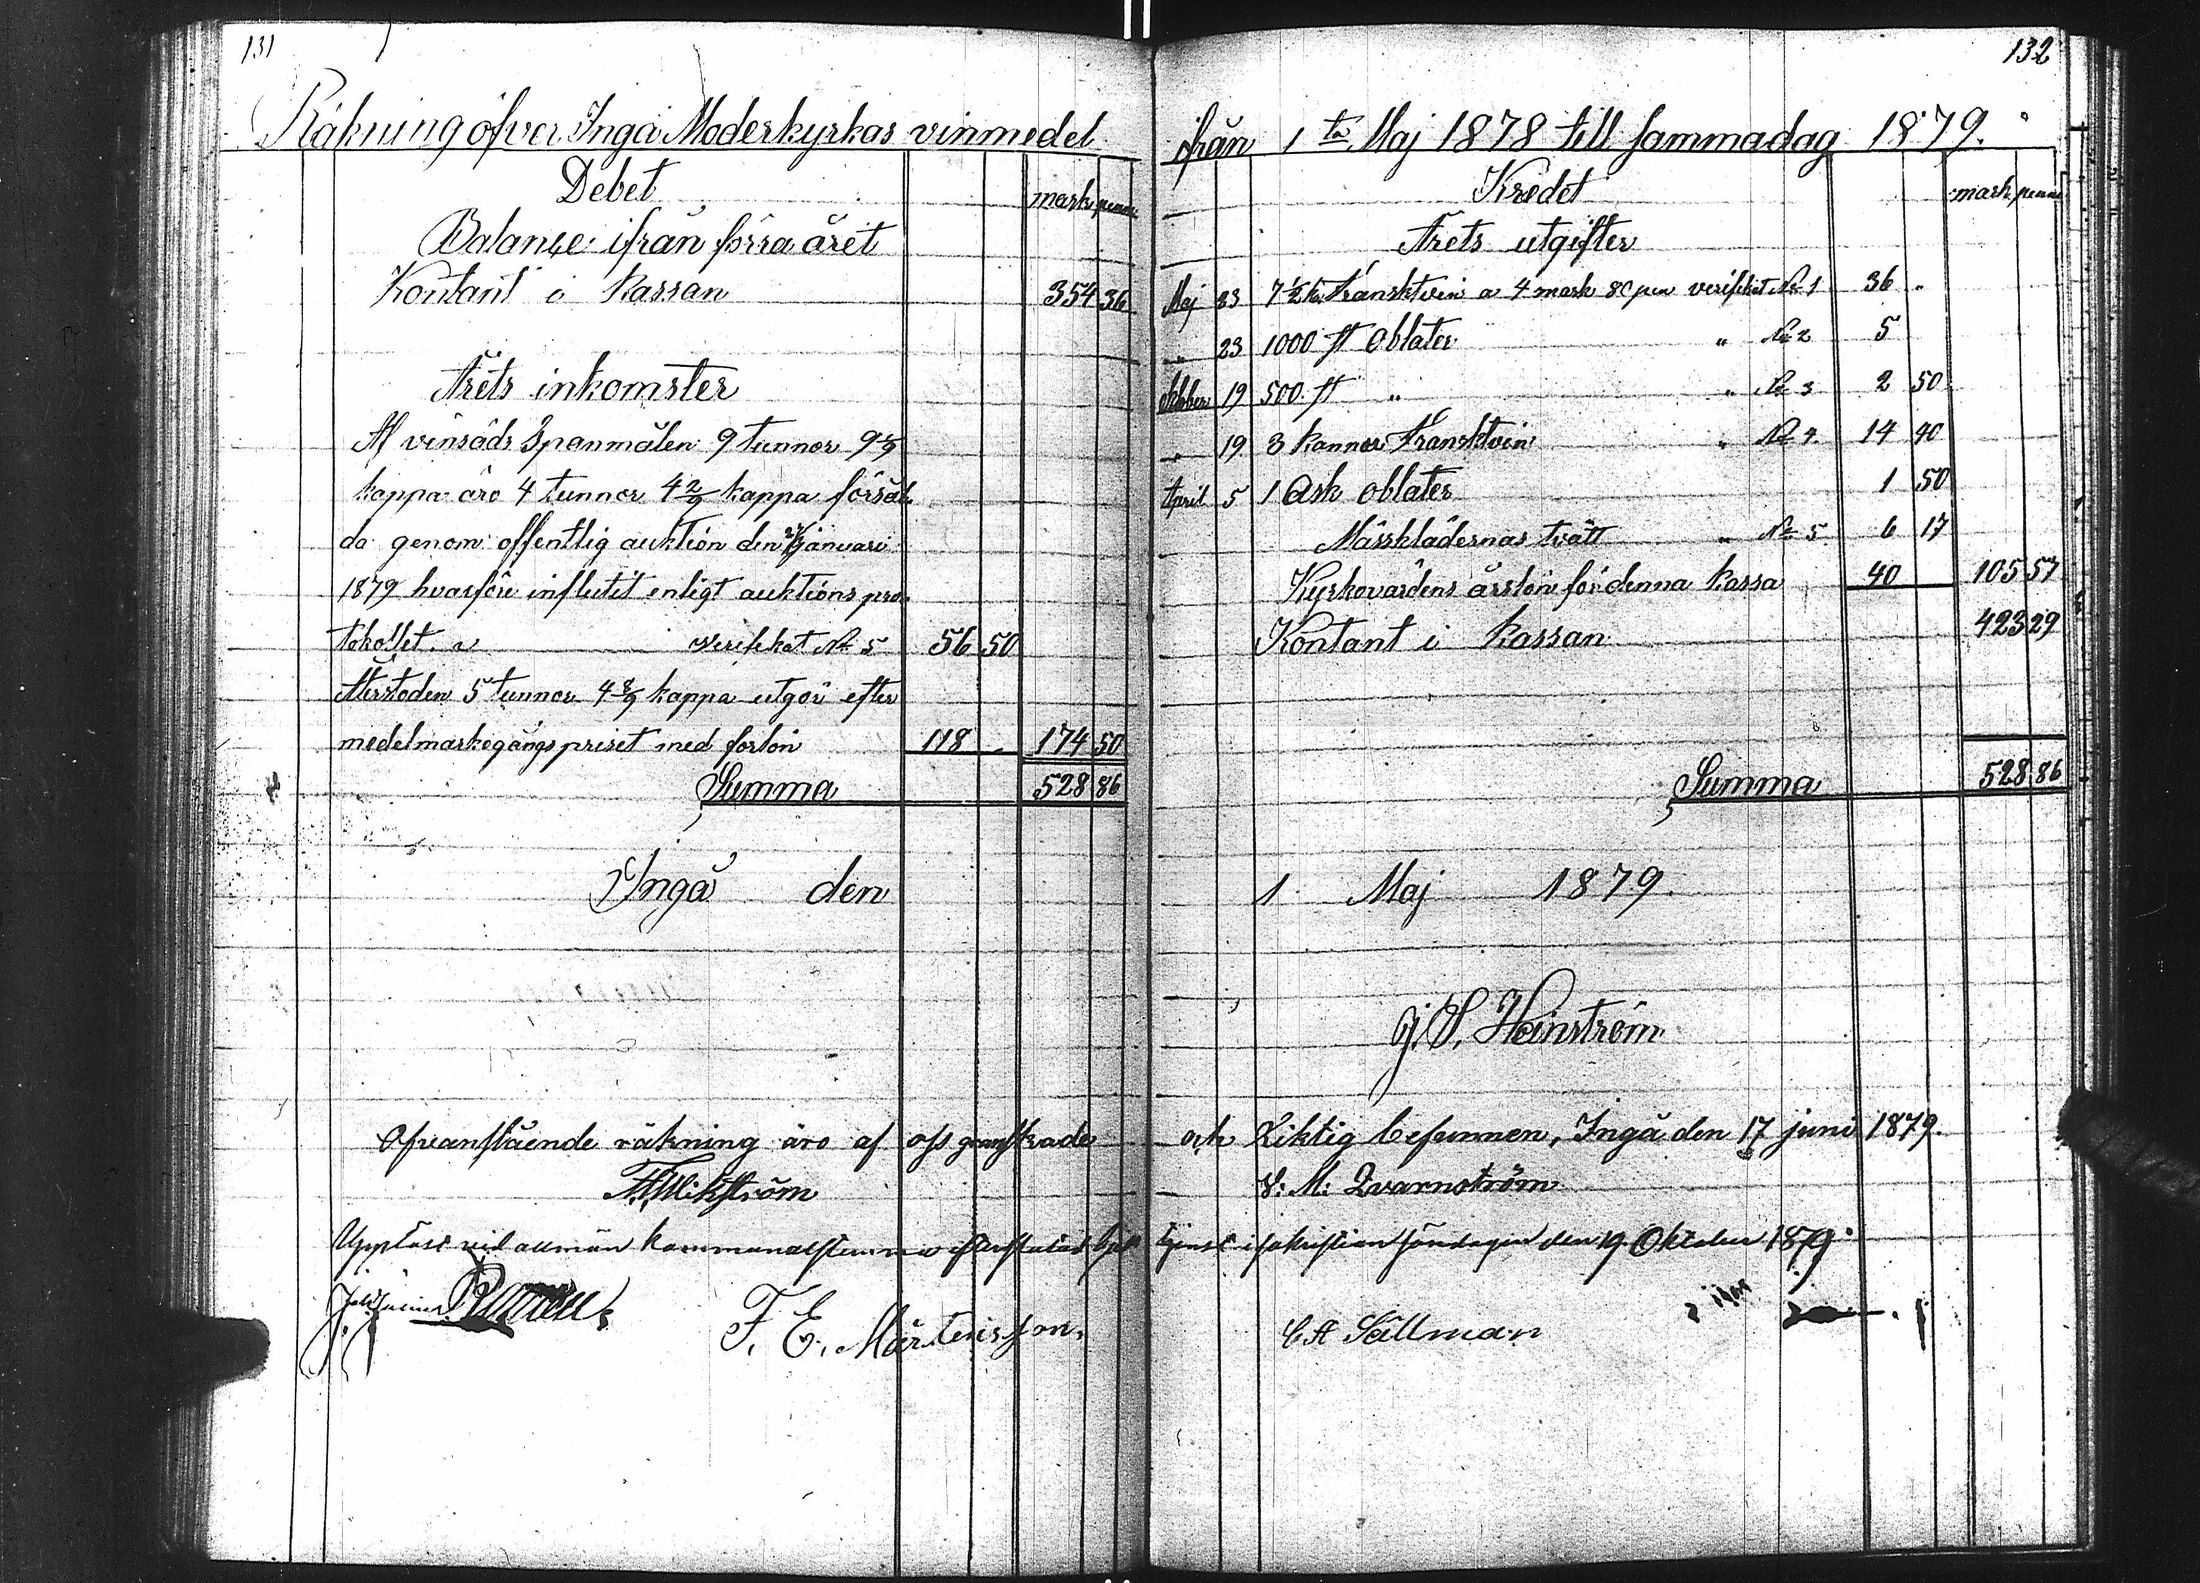 131
Räkning öfver Ingå Moderkyrkas vinmedel
Debet
mark penni
Balance ifrån förra året
Kontant i Kassan 354 36
Årets inkomster
Af vinsäds Spanmålen 9 tunnor 9 1/9
kappa äro 4 tunnor 4 2/9 kappa försål
da genom offentlig auktion den januari
1879 hvarföre influtit enligt auktions pro
tokollet a verifikat No 5 56 50
Återstoden 5 tunnor 4 8/9 kappa utgör efter
medelmarkegångspriset med forlön 118 174 50
Summa 528 86
Ingå den
Ofvanstående räkning äro af oss granskade
Wikström
Uppläst vid allmän kommunalstämma efter
F. E. Mårtensson
132
ifrån 1ta Maj 1878 till samma dag 1879.
Kredet
mark penni
Årets utgifter
Maj 23 7 1/2 ka Fránsktvin a 4 mark 80 pen verifikat No 1 36 "
" 23 1000 st Oblater " No 2 5
Oktober 19 500 st " " No 3 2 50
" 19 3 kannor Fransktvin " No 4 14 40
April 5 1 Ask oblater 1 50
Mässklädernas tvätt " No 5 6 17
Kyrkovärdens årslön för denna kassa 40 105 57
Kontant i Kassan 423 29
Summa 528 86
1 Maj 1879.
G. S. Heinström
och Riktig befunnen, Ingå den 17 juni 1879.
V: M: Qvarnström
tjenst i sakristian söndagen den 19 Oktober 1879.
C A Sällman